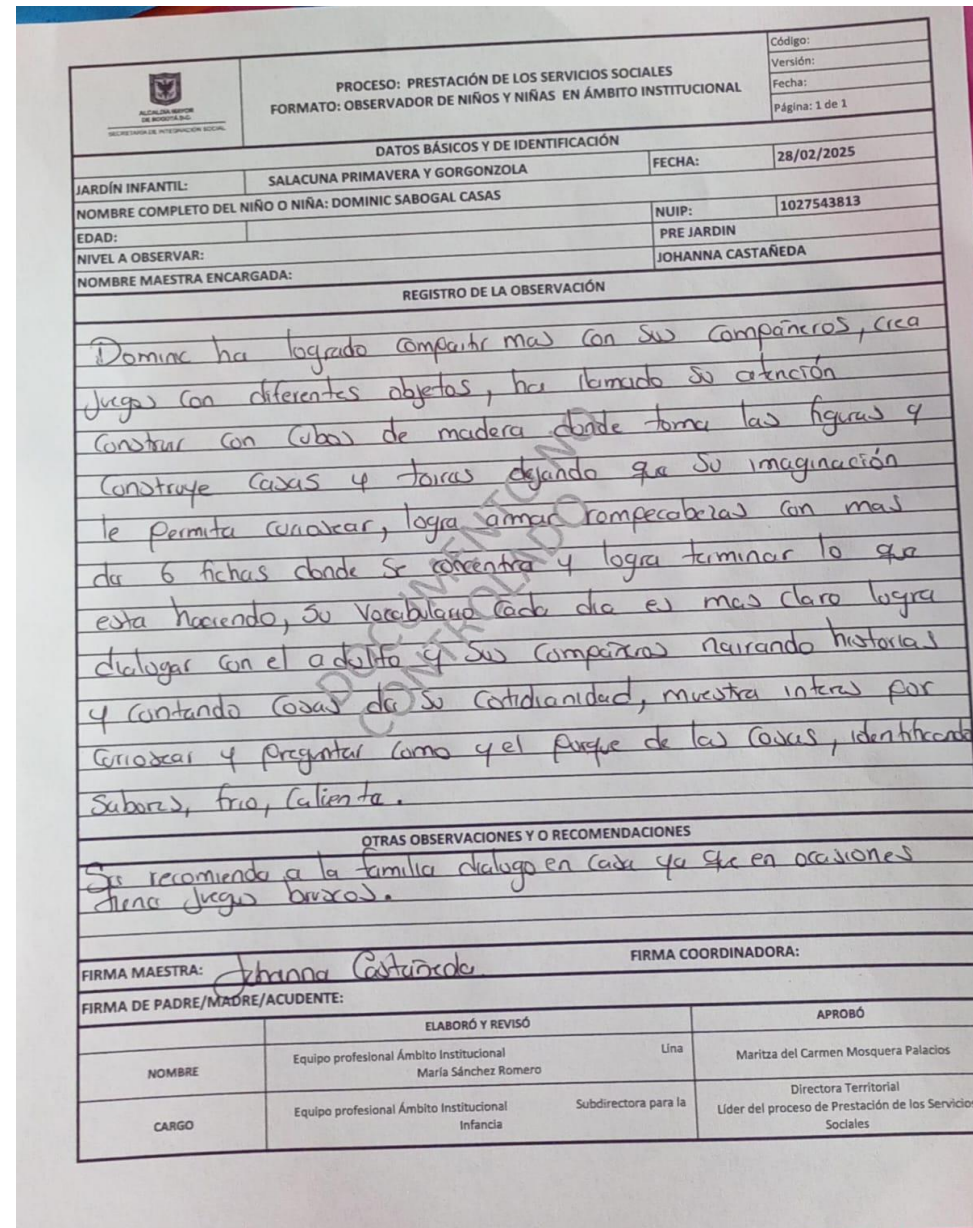 Código:
Versión:
Fecha:
Página: 1 de 1
ALCALDIA MAYOR
DE BOGOTÁ D.C.
SECRETARÍA DE INTEGRACIÓN SOCIAL
PROCESO: PRESTACIÓN DE LOS SERVICIOS SOCIALES
FORMATO: OBSERVADOR DE NIÑOS Y NIÑAS EN ÁMBITO INSTITUCIONAL
DATOS BÁSICOS Y DE IDENTIFICACIÓN
JARDÍN INFANTIL: SALACUNA PRIMAVERA Y GORGONZOLA FECHA: 28/02/2025
NOMBRE COMPLETO DEL NIÑO O NIÑA: DOMINIC SABOGAL CASAS
EDAD: NUIP: 1027543813
NIVEL A OBSERVAR: PRE JARDIN
NOMBRE MAESTRA ENCARGADA: JOHANNA CASTAÑEDA
REGISTRO DE LA OBSERVACIÓN
Dominc ha logrado compartir mas con sus compañeros, crea
Juegos con diferentes objetos, ha llamado su atención
Construir con cubos de madera donde toma las figuras y
Construye casas y torres dejando que su imaginación
le permita conoscar, logra armar rompecabezas con mas
de 6 fichas donde se concentra y logra terminar lo que
esta haciendo, su vocabulario cada dia es mas claro logra
dialogar con el adulto y sus compañeros narrando historias
y contando cosas de su cotidianidad, muestra interes por
conoscar y preguntar como y el porque de las cosas, identificando
Sabores, frio, Caliente.
DOCUMENTO NO
CONTROLADO
OTRAS OBSERVACIONES Y O RECOMENDACIONES
Se recomienda a la familia dialogo en casa ya que en occasiones
tiene juegos bruscos.
FIRMA MAESTRA: Johanna Castañeda FIRMA COORDINADORA:
FIRMA DE PADRE/MADRE/ACUDENTE:
ELABORÓ Y REVISÓ APROBÓ
NOMBRE Equipo profesional Ámbito Institucional Lina
María Sánchez Romero Maritza del Carmen Mosquera Palacios
CARGO Equipo profesional Ámbito Institucional Subdirectora para la
Infancia Directora Territorial
Líder del proceso de Prestación de los Servicios
Sociales